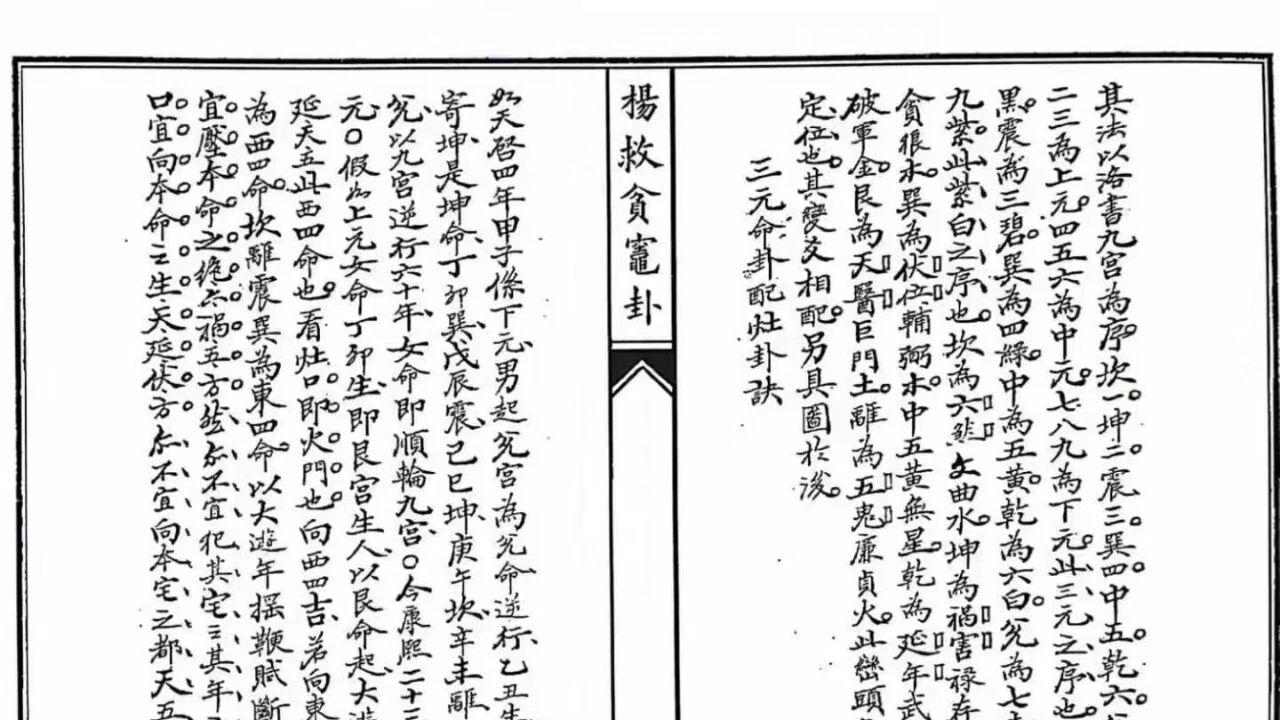 其法以洛書九宮為序坎一坤二震三巽四中五乾六
二三為上元四五六為中元七八九為下元此三元之序也
黑震為三碧巽為四綠中為五黃乾為六白兌為七
九紫此紫白之序也坎為六煞文曲水坤為禍害祿存
貪狼木巽為伏位輔弼木中五黃無星乾為延年武
破軍金艮為天醫巨門土離為五鬼廉貞火此巒頭
定位也其變爻相配另具圖於後
三元命卦配灶卦訣
楊救貧竈卦
如天啓四年甲子係下元男起兌宮為兌命逆行乙丑生
寄坤是坤命丁卯巽戊辰震己巳坤庚午坎辛未離
兌以九宮逆行六十年女命即順輪九宮○今康熙二十三
元○假如上元女命丁卯生即艮宮生人以艮命起大遊
延天五此西四命也看灶口即火門也向西四吉若向東
為西四命坎離震巽為東四命以大遊年搖鞭賦斷
宜壓本命之絕六禍五方然亦不宜犯其宅三其年
口宜向本命之生天延伏方亦不宜向本宅之都天五